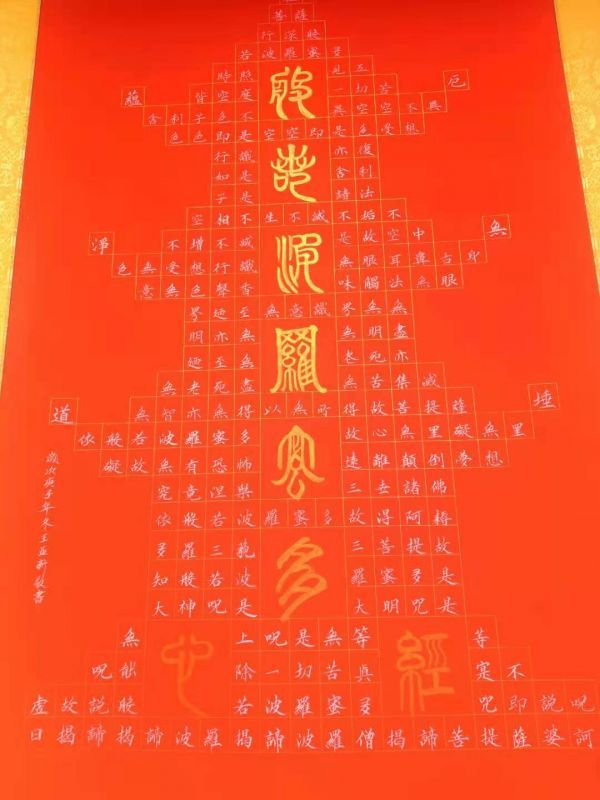 菩薩
行深般
若波羅蜜多
時照 見五
蘊 皆空度 一切苦 厄
舍利子色不 異空空不異
色色即是空空即是色受想
行識 亦復
如是 舍利
子是 諸法
空相不生不滅不垢不
淨 不增不減 是故空中 無
色無受想行識 無眼耳鼻舌身
意無色聲香 味觸法無眼
界廼至無意識界無無
明亦無 無明盡
廼至無 老死亦
無老死盡 無苦集滅
道 無智亦無得以無所得故菩提薩 埵
依般若波羅蜜多 故心無罣礙無罣
礙故無有恐怖 遠離顛倒夢想
究竟涅槃 三世諸佛
依般若波羅蜜多故得阿耨
多羅三藐 三菩提故
知般若波 羅蜜多是
大神咒是 大明咒是
無 上咒是無等 等
咒能 除一切苦真 實不
虛故說般 若波羅蜜多 咒即說咒
曰揭諦揭諦波羅揭諦波羅僧揭諦菩提薩婆訶
般若波羅蜜多心經
歲次庚子年冬王益新敬書